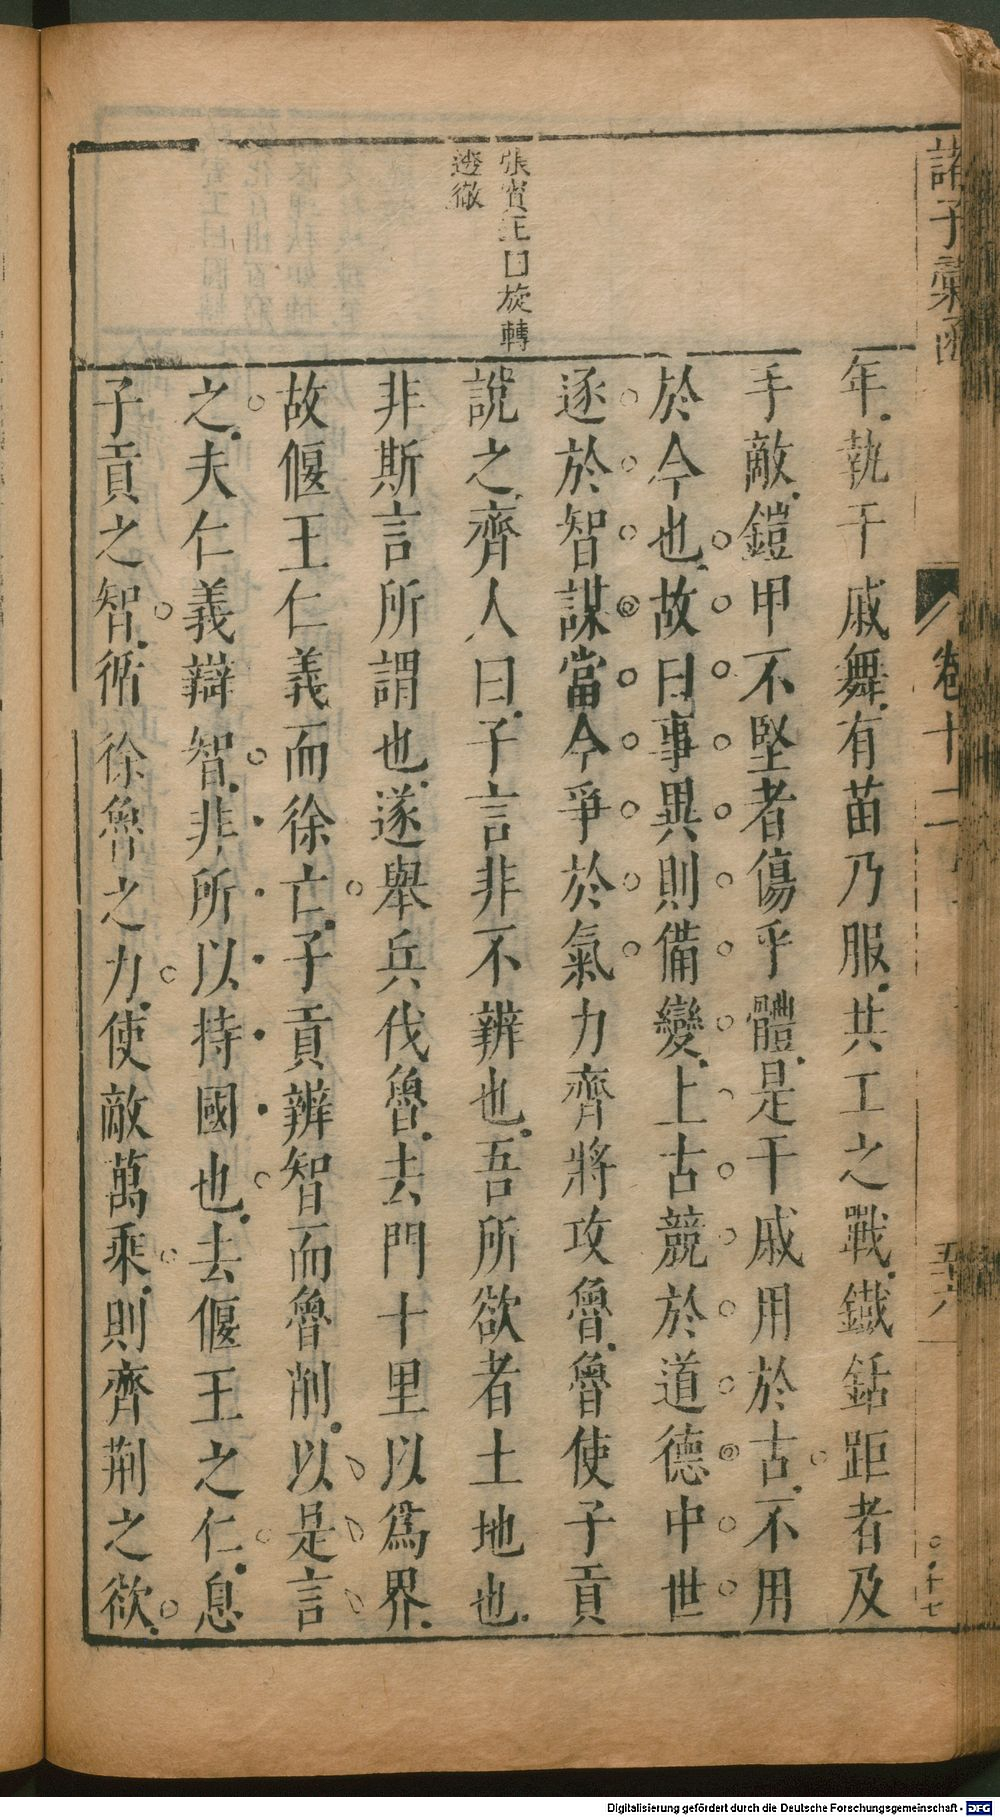 諸子彙函
卷十二
五六
張賓王曰旋轉
透徹
年執干戚舞有苗乃服共工之戰鐵銛距者及
手敵鎧甲不堅者傷乎體是干戚用於古不用
於今也故曰事異則備變上古競於道德中世
逐於智謀當今爭於氣力齊將攻魯魯使子貢
說之齊人曰子言非不辨也吾所欲者土地也
非斯言所謂也遂舉兵伐魯去門十里以為界
故偃王仁義而徐亡子貢辨智而魯削以是言
之夫仁義辯智非所以持國也去偃王之仁息
子貢之智循徐魯之力使敵萬乘則齊荆之欲
Digitalisierung gefördert durch die Deutsche Forschungsgemeinschaft - DFG